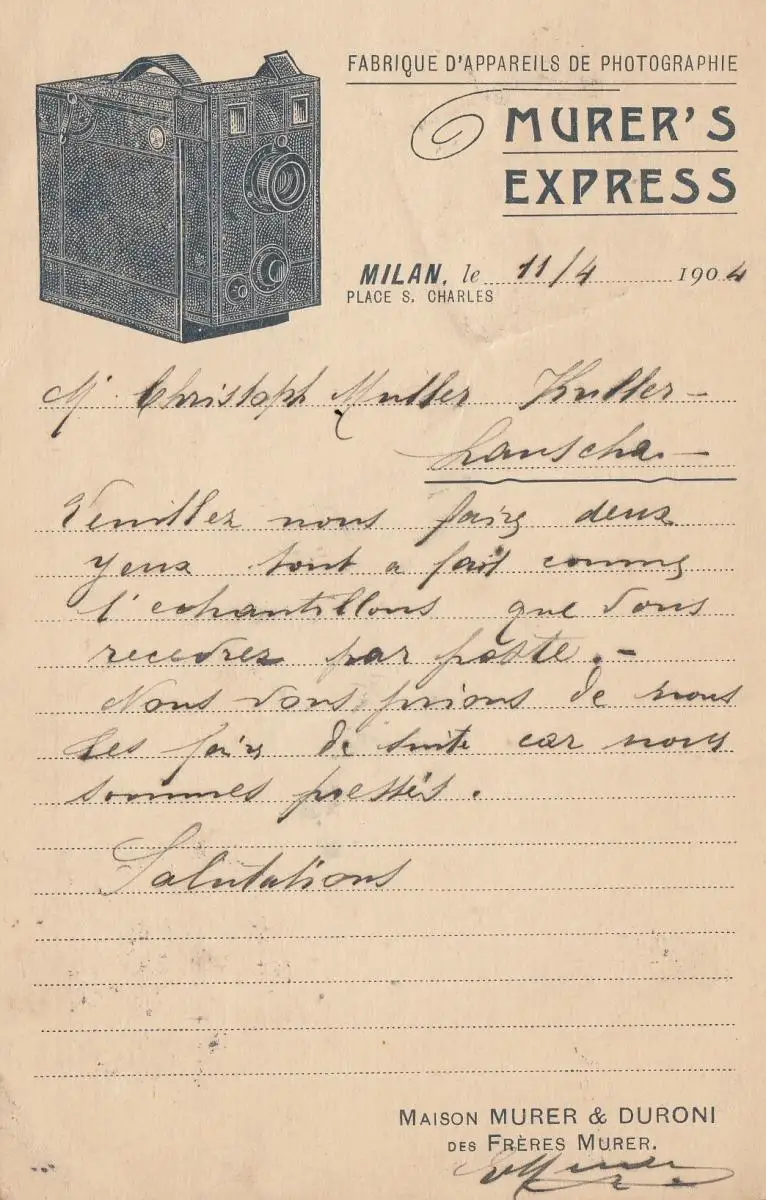 FABRIQUE D'APPAREILS DE PHOTOGRAPHIE
MURER'S
EXPRESS
MILAN, le 11/4 1904
PLACE S. CHARLES
Mr Christoph Muller
Lauscha. —
Veuillez nous faire deux
yeux tout a fait comme
l'echantillons que vous
recevrez par poste. —
Nous vous prions de nous
les faire de suite car nous
sommes pressés.
Salutations
MAISON MURER & DURONI
DES FRÈRES MURER.